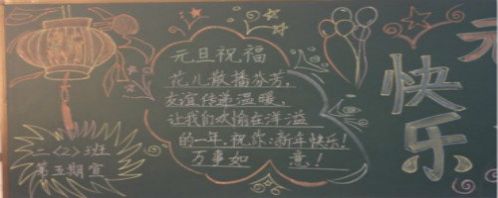 元旦祝福
花儿散播芬芳,
友谊传递温暖,
让我们欢愉在洋溢
的一年,祝你:新年快乐!
万事如 意!
二〈2〉班
第五期宣
快乐